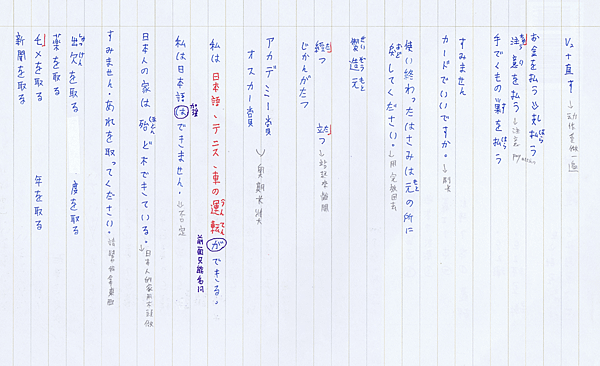 V2+直す → 動作重做一遍
お金を払う ⇒ 礼払う
注意を払う → 注意 pay attention
手でくもの巣を払う
すみません
カードでいいですか。→ 刷卡
使い終わったはさみは元の所に
戻してください。→ 用完放回去
製造元
経つ 立つ → 站起来 離開
じかんがたつ
アカデミー賞
オスカー賞
→ 奥斯卡獎
私は 日本語・テニス・車の運転ができる。
前面只能名詞
私は日本語はできません。→ 否定
日本人の家は 殆ど木でできている。→ 日本人的家用木頭做
すみません。あれを取ってください。
出欠を取る 度を取る
薬を取る
メモを取る 年を取る
新聞を取る